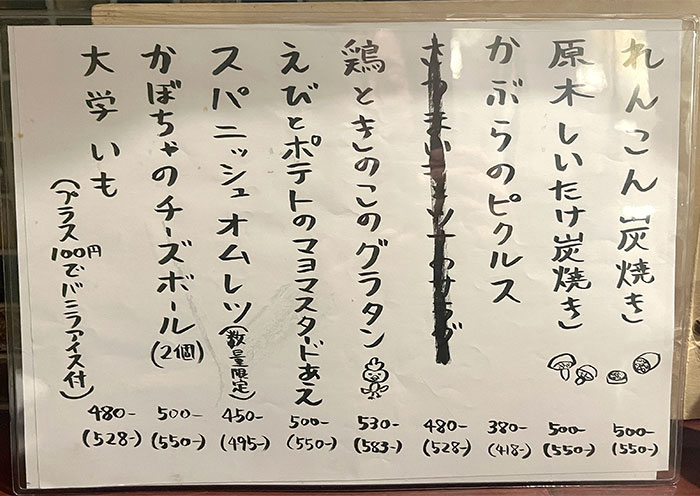 れんこん炭焼き
500-
(550-)
原木しいたけ炭焼き
500-
(550-)
かぶらのピクルス
380-
(418-)
480-
(528-)
鶏ときのこのグラタン
530-
(583-)
えびとポテトのマヨマスタードあえ
500-
(550-)
スパニッシュオムレツ(数量限定)
450-
(495-)
かぼちゃのチーズボール(2個)
500-
(550-)
大学いも
(プラス100円でバニラアイス付)
480-
(528-)